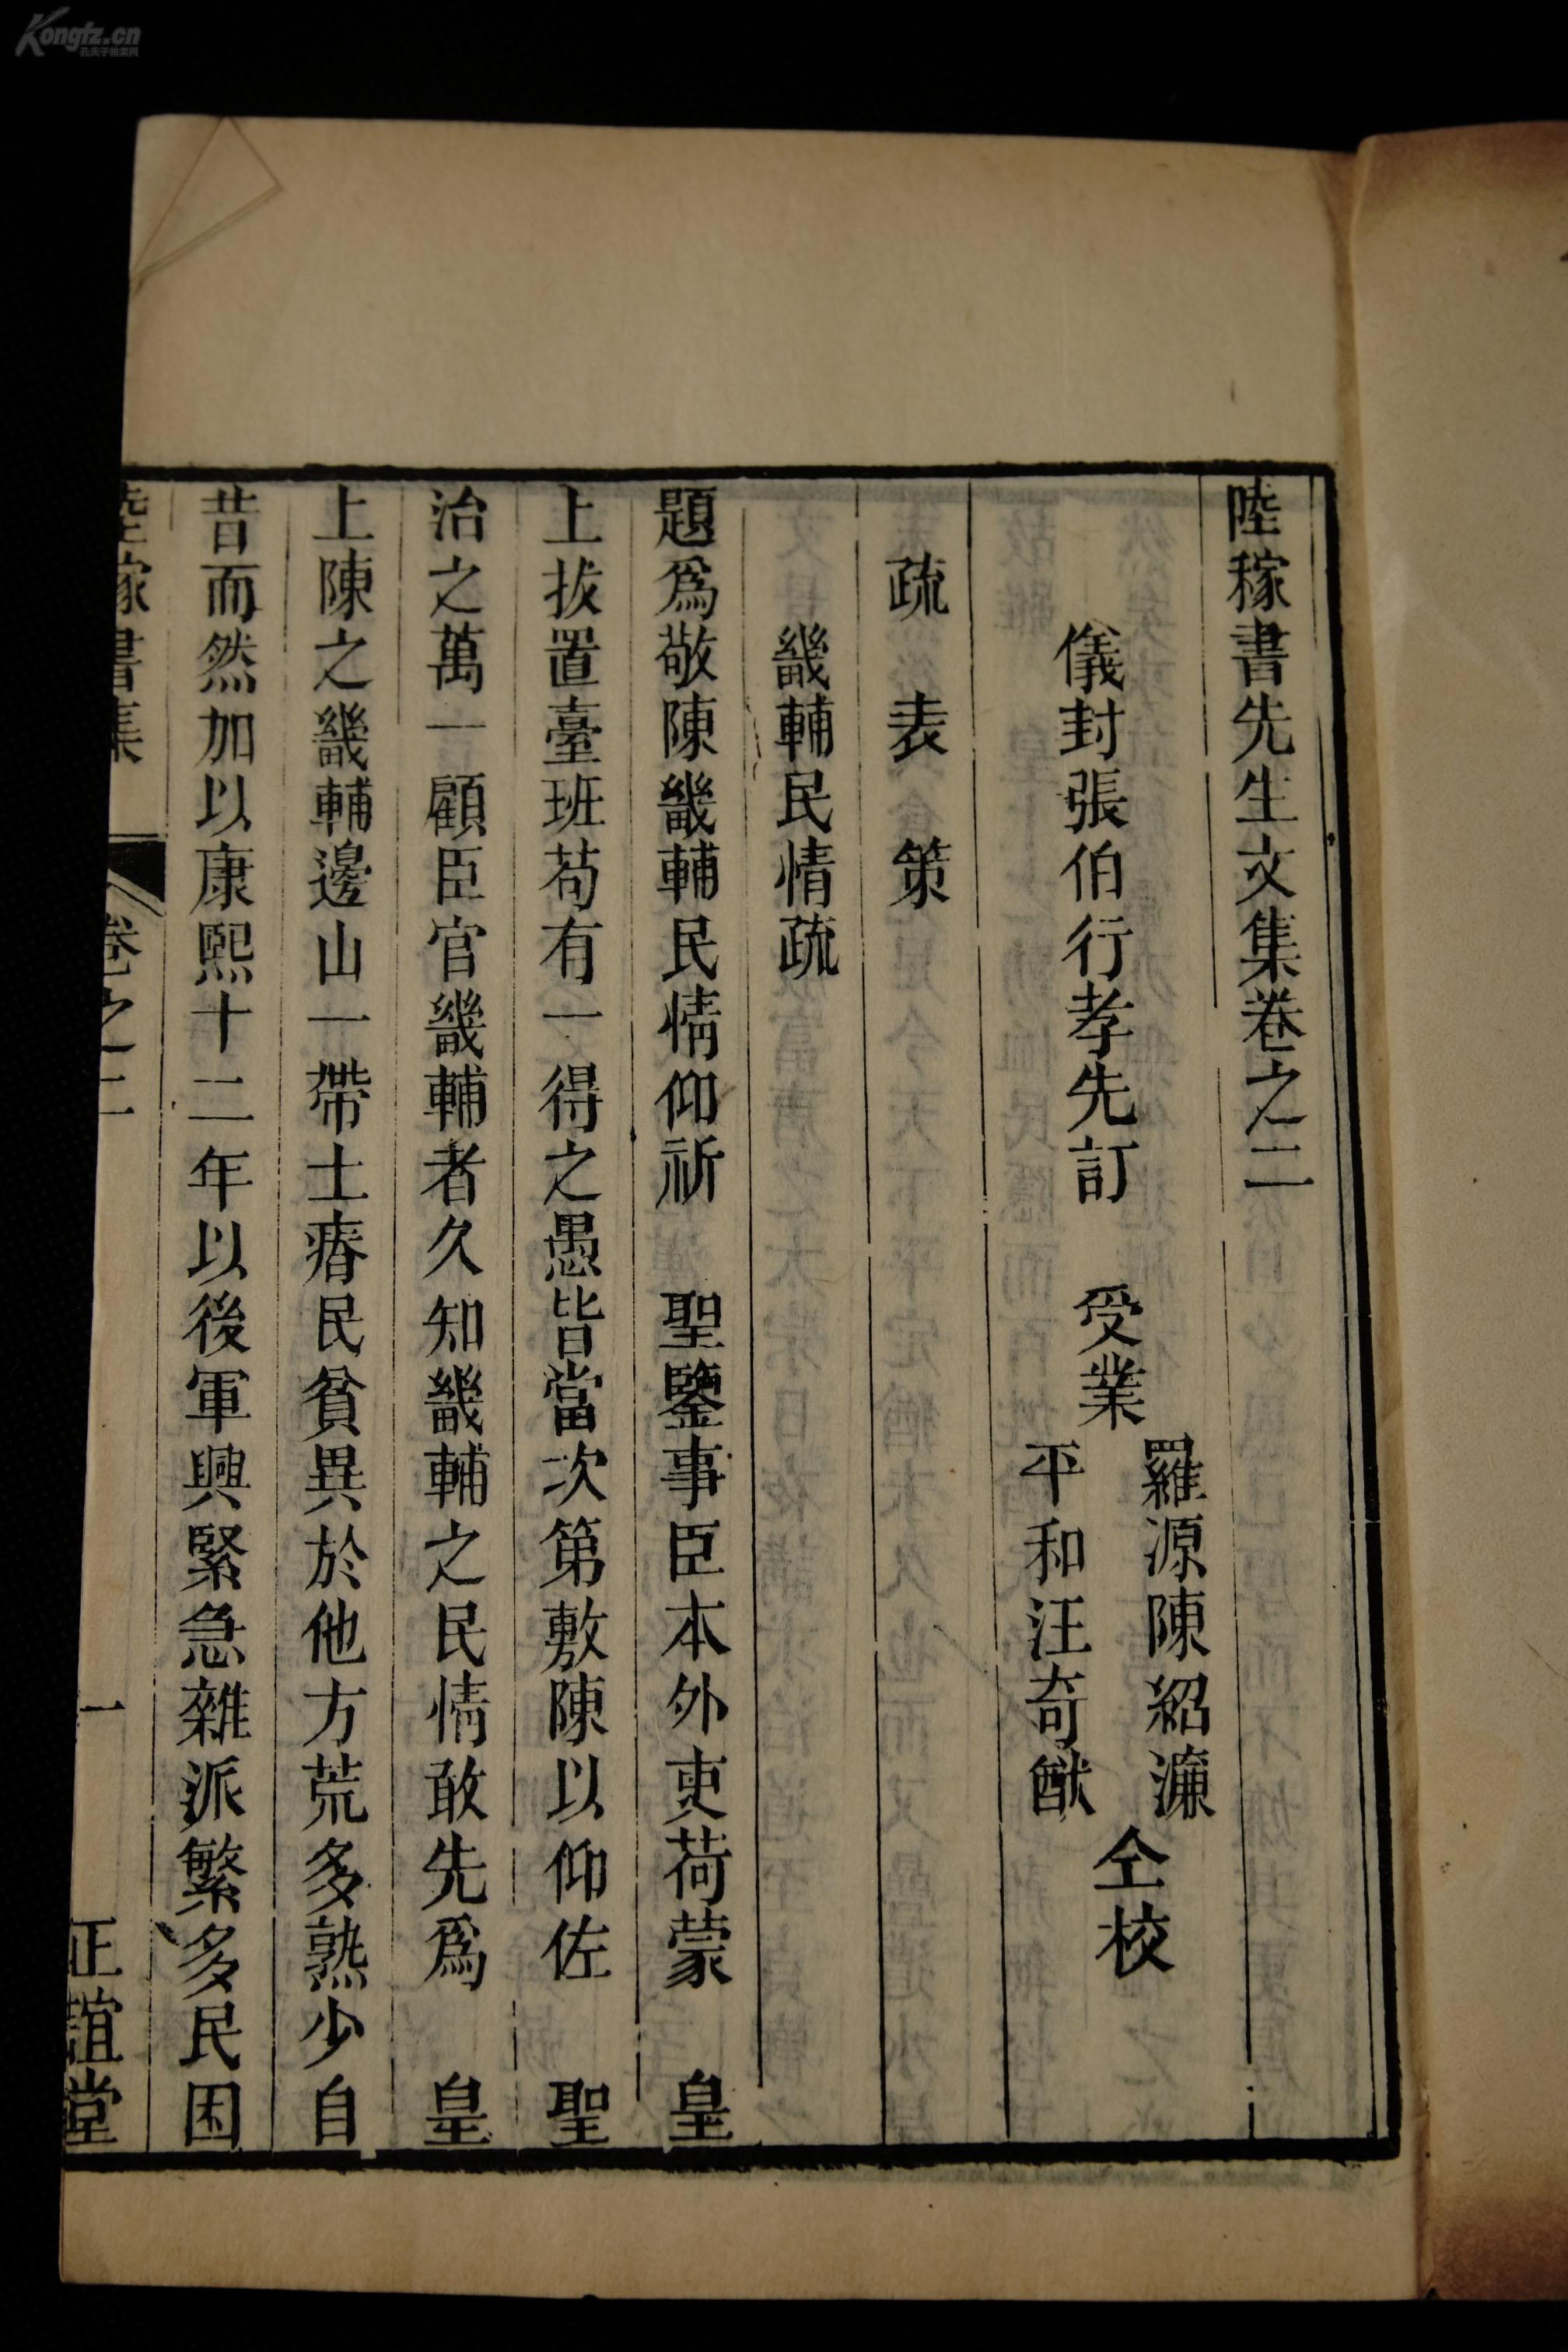 Kongfz.cn
陸稼書先生文集卷之二
儀封張伯行孝先訂　受業
羅源陳紹濂
平和汪奇猷
仝校
疏　表　策
畿輔民情疏
題爲敬陳畿輔民情仰祈　聖鑒事臣本外吏荷蒙　皇
上拔置臺班苟有一得之愚皆當次第敷陳以仰佐　聖
治之萬一顧臣官畿輔者久知畿輔之民情敢先爲　皇
上陳之畿輔邊山一帶土瘠民貧異於他方荒多熟少自
昔而然加以康熙十二年以後軍興緊急雜派繁多民困
陸稼書集　卷之二　一　正誼堂